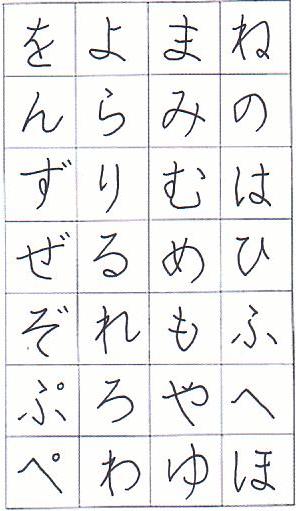 ねのはひふへほ
まみむめもやゆ
よらりるれろわ
をんずぜぞぷぺ